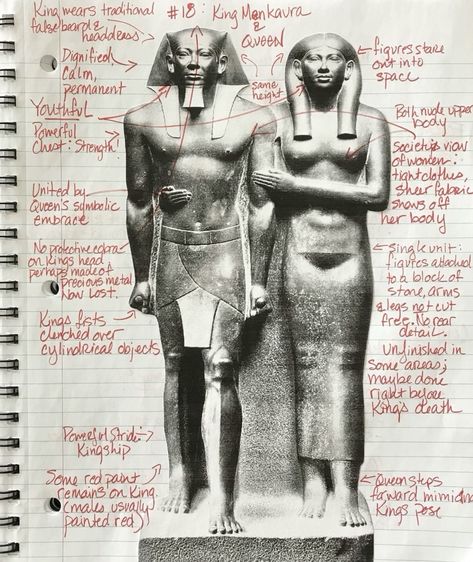 #18: King Menkaura
&
QUEEN
King wears traditional
false beard &
headdress
Dignified,
Calm,
permanent
same
height
figures stare
out into
space
Youthful
Powerful
Chest: Strength!
Both nude upper
body
Societies view
of women:
tight clothes,
sheer fabric
shows off
her body
United by
Queen's symbolic
embrace
No protective cobra
on Kings head,
perhaps made of
precious metal
Now Lost.
Single unit:
figures attached
to a block of
stone, arms
& legs not cut
free. No rear
detail.
Kings fists
clenched over
cylindrical objects
Unfinished in
some areas;
maybe done
right before
King's death
Powerful Stride:
Kingship
Some red paint
remains on King.
(males usually
painted red)
Queen steps
forward mimicing
Kings pose